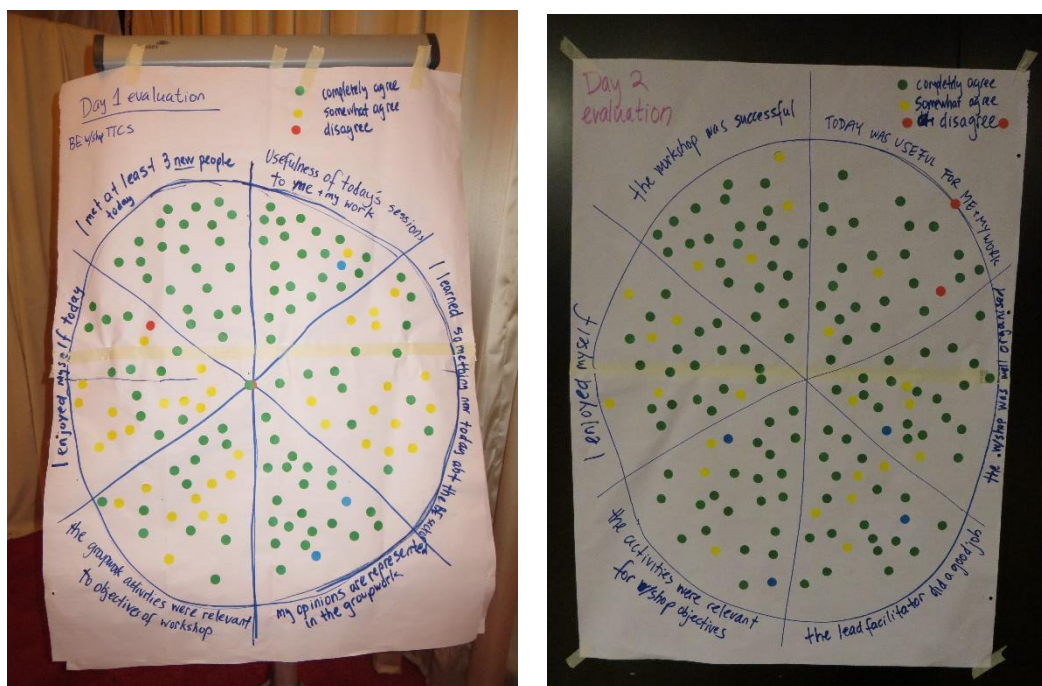 Day 1 evaluation
BE w/shop TTCS
completely agree
somewhat agree
disagree
I met at least 3 new people
today
Usefulness of today's sessions
to me + my work
I learned something new today abt the BE
my opinions are represented
in the groupwork
the groupwork activities were relevant
to objectives of workshop
I enjoyed myself today
Day 2
evaluation
completely agree
somewhat agree
disagree
the workshop was successful
TODAY WAS USEFUL FOR ME + MY WORK
the w/shop was well organised
the lead facilitator did a good job
the activities were relevant
for w/shop objectives
I enjoyed myself